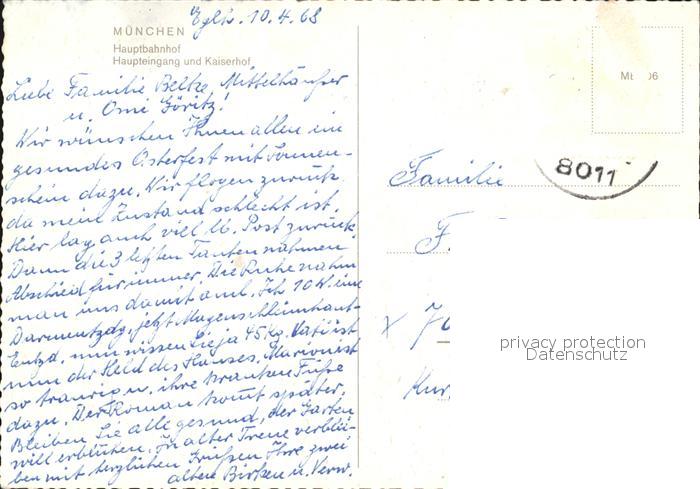 MÜNCHEN
Hauptbahnhof
Haupteingang und Kaiserhof
10.4.68
Liebe Familie Beltze, Mittelhäußer
u. Omi Göritz!
Wir wünschen Ihnen allen ein
gesundes Osterfest mit Sonnen-
schein dazu. Wir flogen zurück
da mein Zustand schlecht ist.
Hier lag auch viel Post zurück
Dann die 3 letzten Tanten nahmen
Abschied für immer. Die Ruhe nahm
man uns damit Ich 10 W. eine
Darmentzdg, jetzt Magenschleimhaut-
Entzd. nun wissen Sie ja 45 Kg. Vati ist
nun der Held des Hauses. ist
so traurig u. ihre kranken Füße
dazu. Der Roman kommt später.
Bleiben Sie alle gesund, der Garten
will erblühen. In alter Treue verblei-
ben mit herzlichen Grüßen Ihre zwei
alten u.
MÜ 06
8011
Familie
F.
privacy protection
Datenschutz